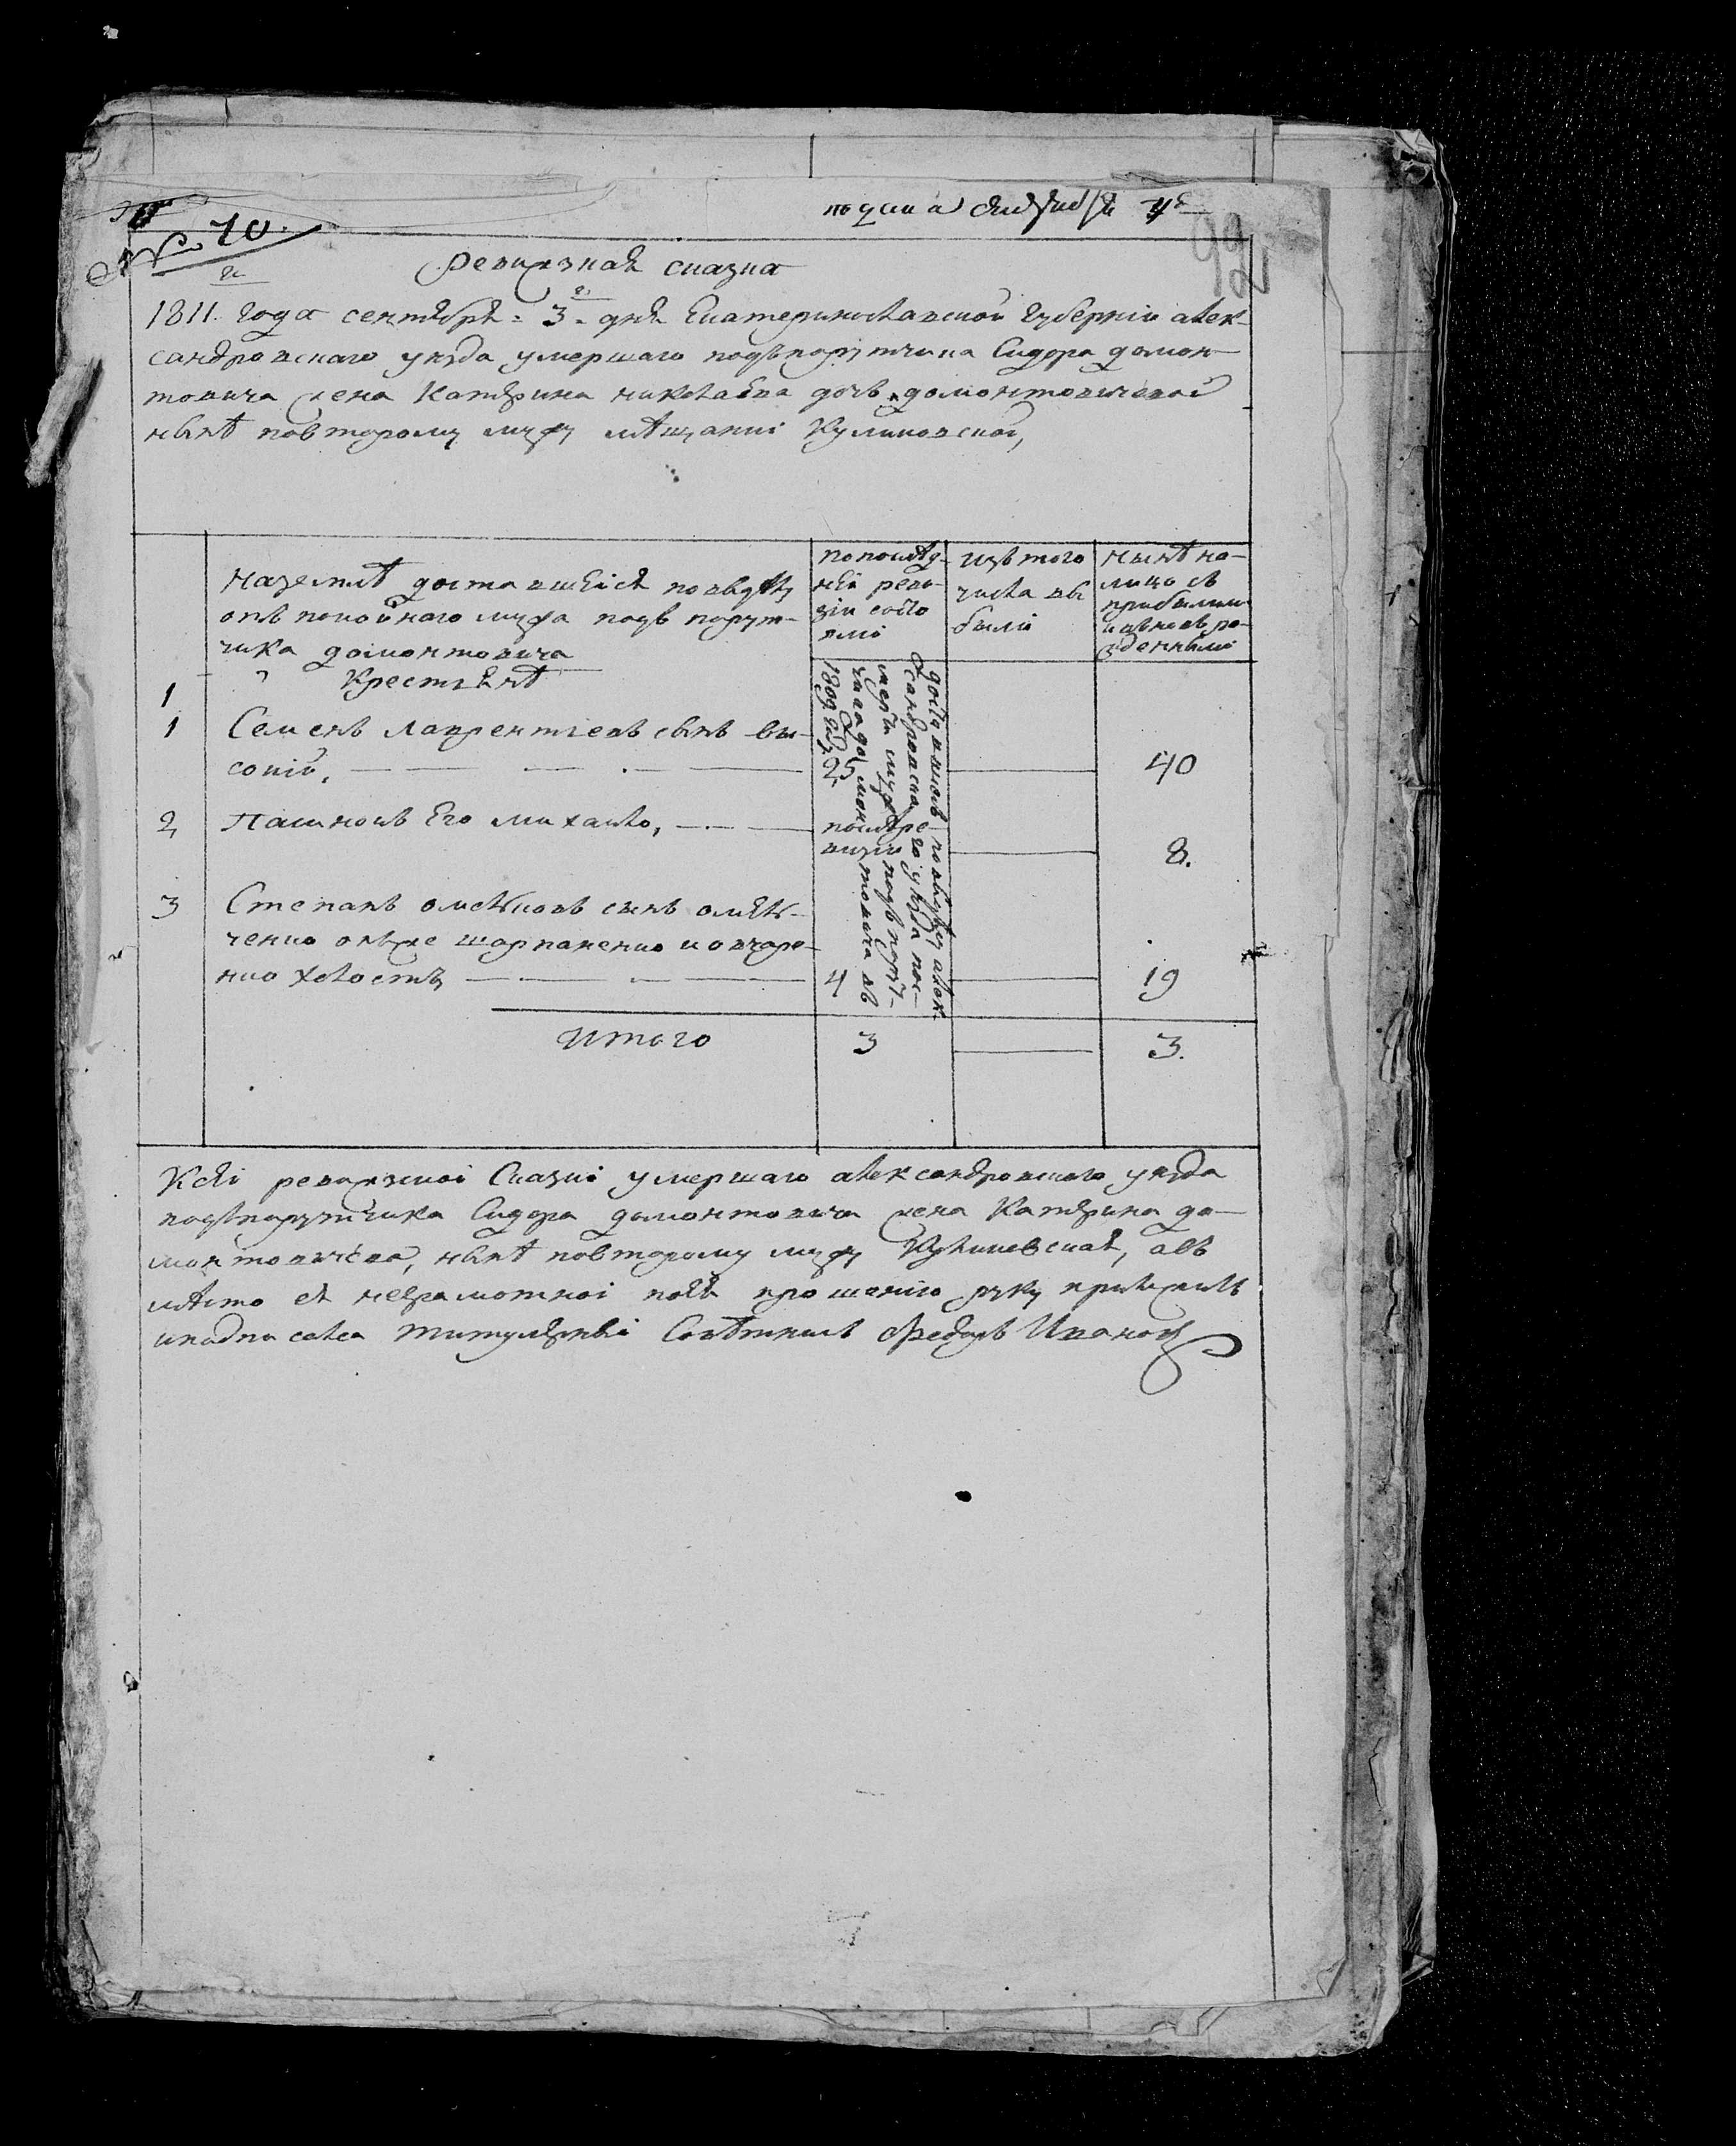 № 10.
подана сентября 4е
92
Ревизская сказка
1811. года сентября 3 дня Екатеринославской губернии алек-
сандровского уезда умершаго подъпорутчика Сидора домон-
товича жена Катярина николаева дочь домонтовичевай
нынѣ повторому мужу мѣщанкі Куликовской,
наземлѣ доставшейся поводу
отъ покойного мужа подъ порут-
чика домонтовича
Крестьянѣ
попослѣд-
нѣй реви-
зіи состо
ялі
изъ того
числа вы
былі
нынѣ на-
лицо съ
прибылым
и вновь ро-
жденнымі
1
1 Семенъ лаврентіевъ сынъ вы-
сокій, 25 40
2 Пасинокъ Его михайло, послѣ ре-
визіи 8.
3 Степанъ омельковъ сынъ омель-
ченко онже шарпаненко и овчаре-
нко холостъ 4 19
доставшись поводу алек-
сандровска го уезда пос-
мерти мужа подъ порут-
чика домонтовича въ
Итого 3 3.
Ксей ревизской Сказкі умершаго александровского уезда
подъпорутчика Сидора домонтовича жена Катярина до-
монтовичева, нынѣ повторому мужу Куликовская, авъ
мѣсто ея неграмотной поея прошенію руку приложилъ
иподписался титулярный Совѣтникъ Федоръ Ивановъ